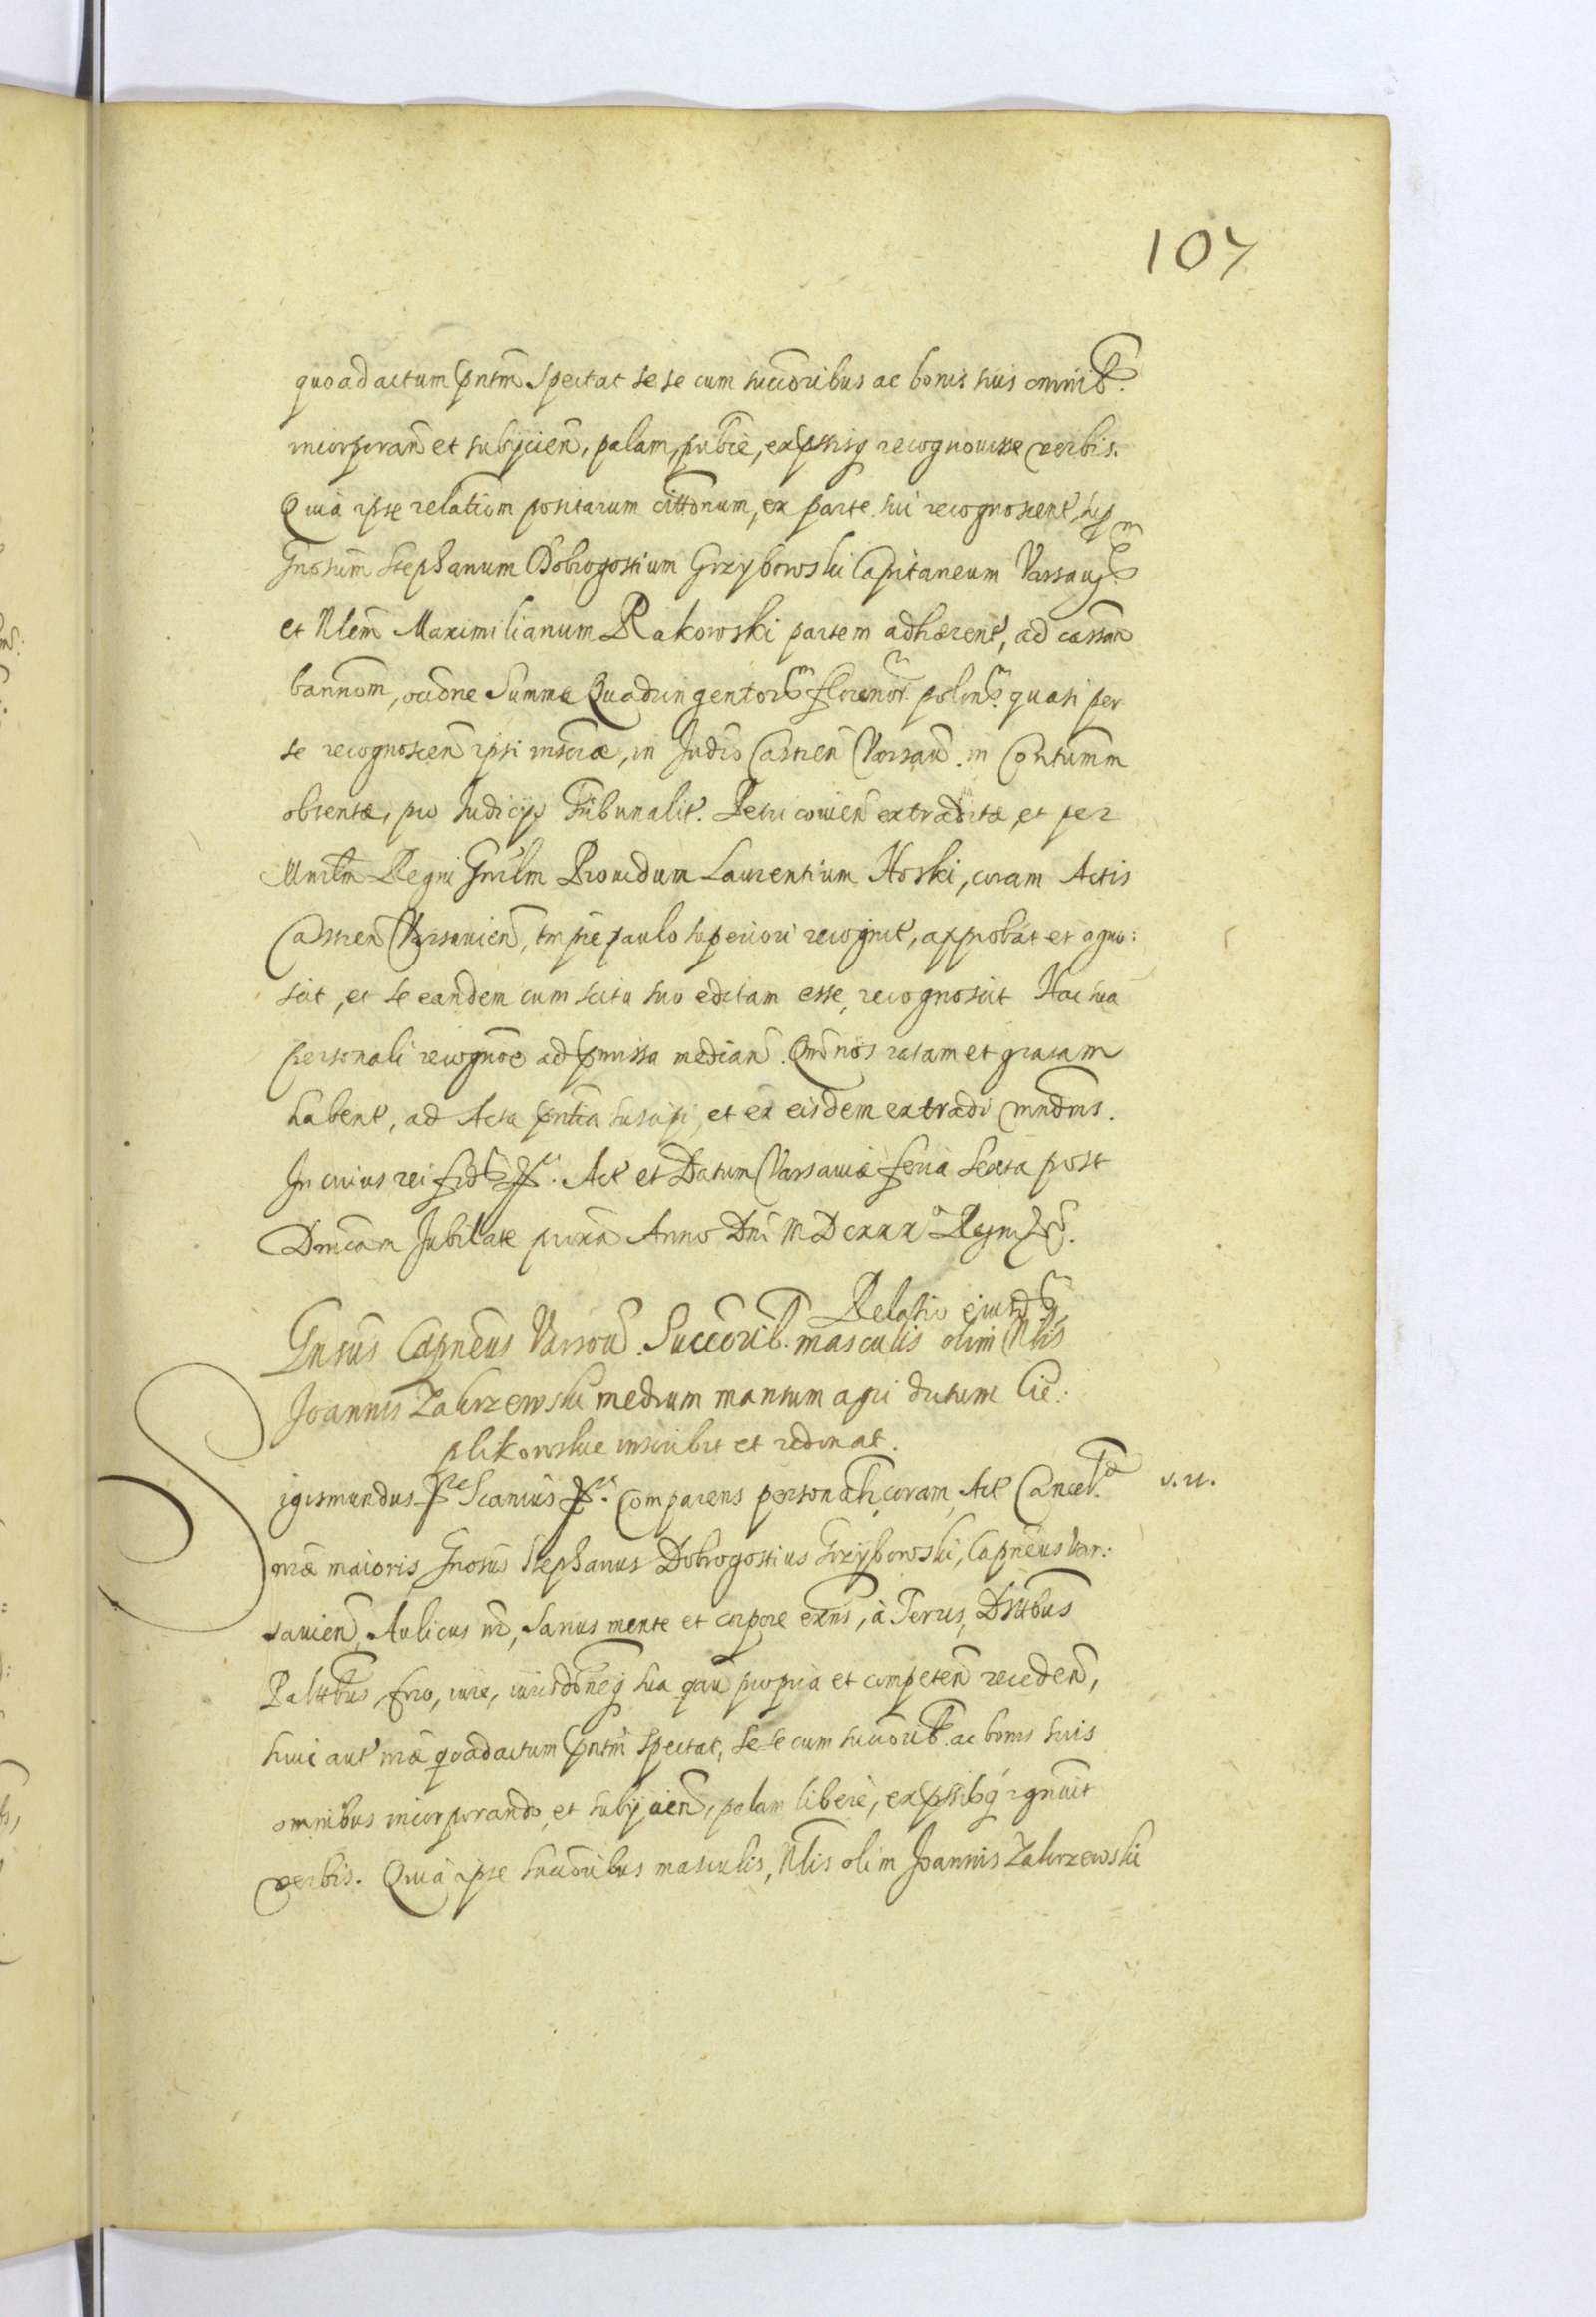 107
quo ad actum pntm spectat se se cum succoribus ac bonis suis omnib.
incorporan et subijcien, palam, publce, expssisq recognouisse verbis.
Quia ipse relatiom positarum cittonum, ex parte sui recognoscent, sup
Gnosum Stephanum Dobrogostium Grzybowski Capitaneum Varsauen
et Nlem Maximilianum Rakowski partem adhærent, ad cassan
bannom, occone Summæ Quadringentor florenor polon. quasi per
se recognoscen ipsi inscriæ, in Judio Castren Varsauien in Contumm
obtentæ, pro Judicijs Tribunalit. Petri couien extraditæ et per
Mnrlm Regni Gnrlm Prouidum Laurentium Noski, coram Actis
Castren Varsauien, tm pre paulo superiori recognit, approbat et agno:
scit, et se eandem cum scitu suo editam esse, recognoscit Hac sua
personali recognoe ad pmissa median. Qm nos ratam et gratam
habent, ad Acta pntia suscipi, et ex eisdem extradi mndms.
In cuius rei fid. Act et Datum Varsauiæ feria Sexta post
Dnicam Jubilate pnxa Anno Dni MDCXXX Regni
Relatio eiusd
Gnsus Capneus Varsou. Succorib. masculis olim Nlis
Joannis Zakrzewski medium mansum agri dictum Cie:
plikowskie inscribit et redonat.
Sigismundus Scanius Comparens personalr coram Act Cancel. s. rr.
nræ maioris Gnosus Stephanus Dobrogostius Grzybowski, Capneus Var:
sauien, Aulicus nr, Sanus mente et corpore exns, à Terris, Dsttbus
Palttbus, foro, iure, iurisdoneq sua qau propria et competen receden,
huic aut næ quoad actum pntm spectat, se se cum succorib. ac bonis suis
omnibus incorporando, et subijcien, palam libere, expssibq rgnuit
verbis. Quia ipse succoribus masculis, Nlis olim Joannis Zakrzewski